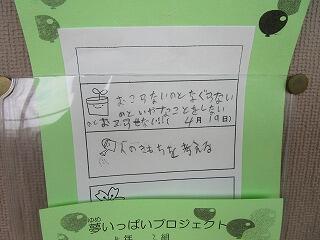 おこらないのと なぐらない
のと いやなことをしない
おこらせない!! (4月19日)
人のきもちを考える
ゆめ
夢いっぱいプロジェクト
年 組